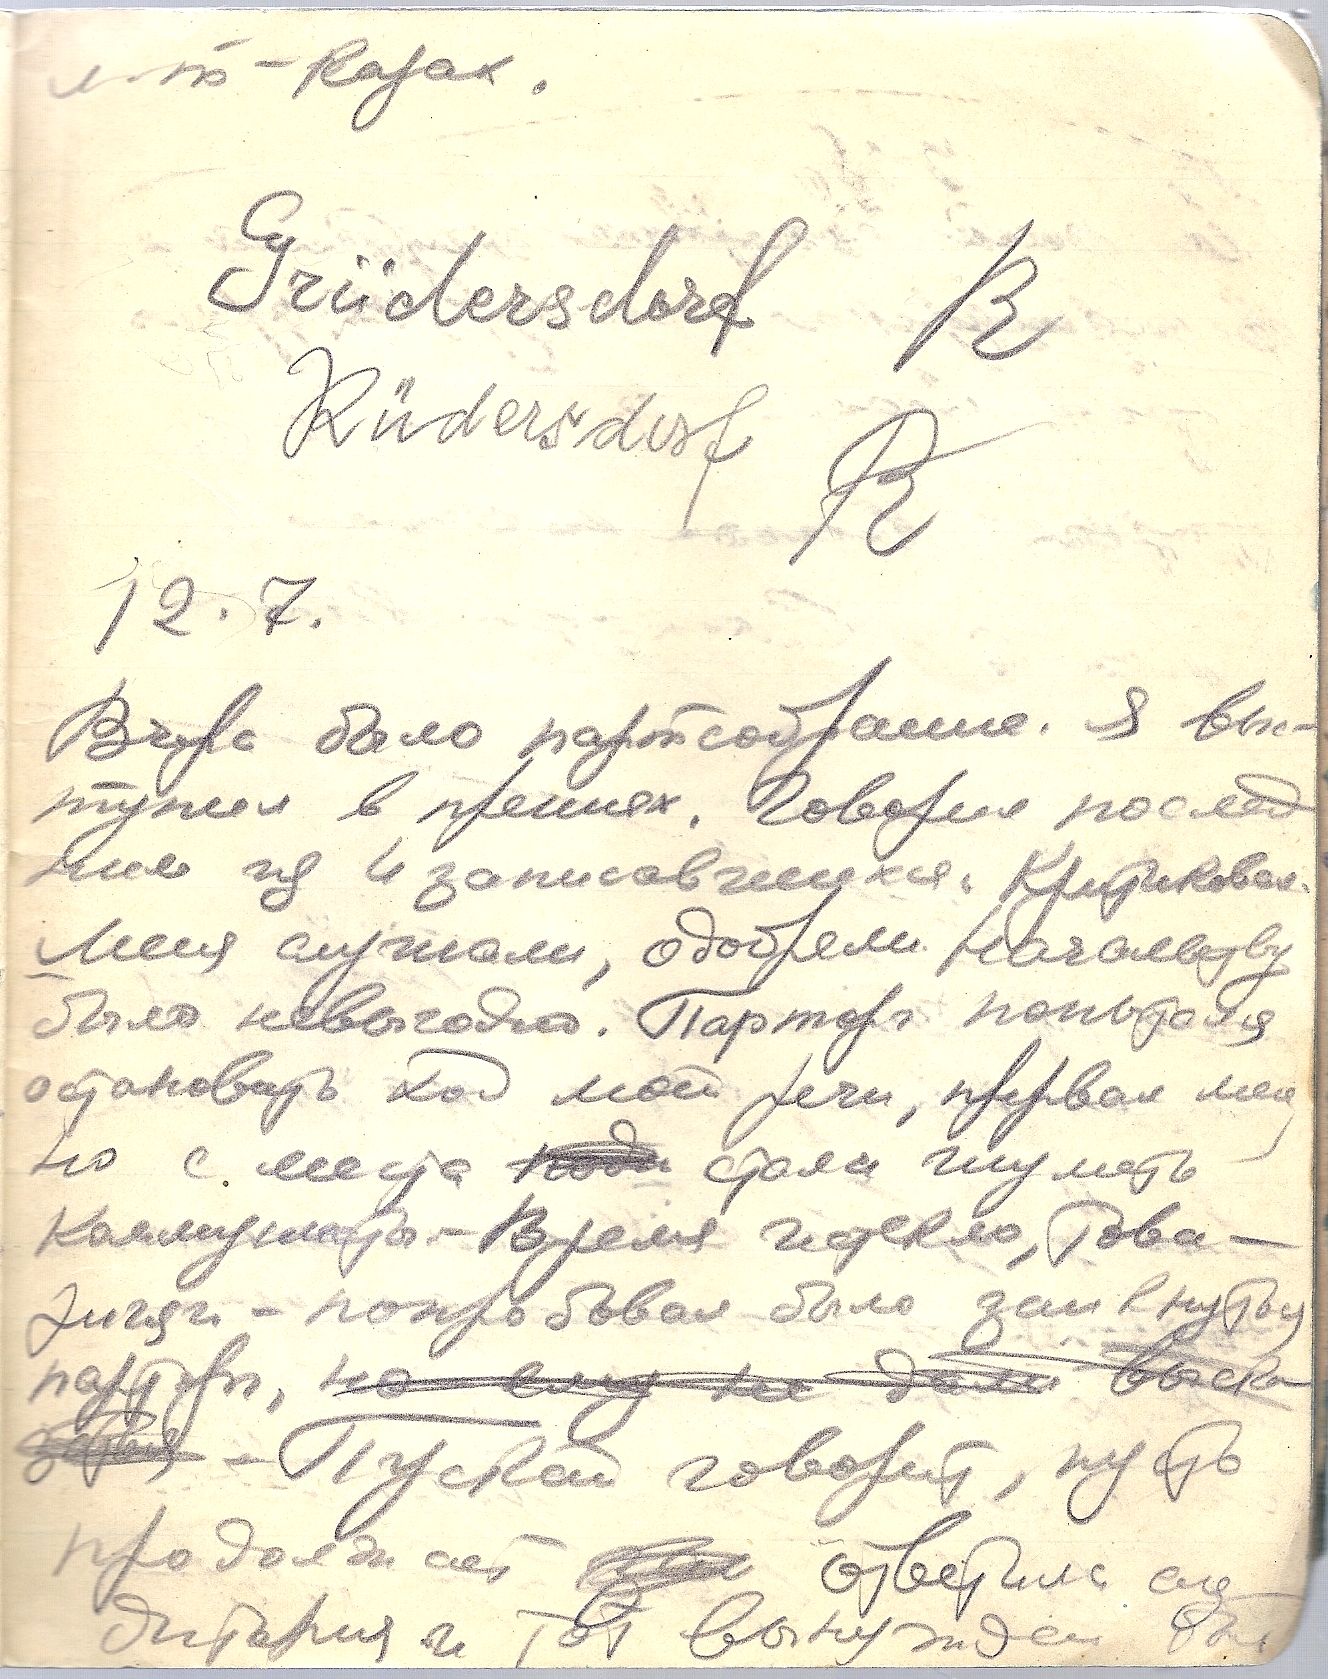 л-т - Казак.
Grüdersdorf R
Rüdersdorf R
12.7.
Вчера было партсобрание. Я выс-
тупил в прениях. Говорил послед
ним из 4 записавшихся. Критиковал.
Меня слушали, одобряли. Начальству
было невыгодно. Парторг попытался
остановить ход моей речи, прервал меня,
но с места стали шуметь
коммунисты - Время истекло, това-
рищи - попробовал было заикнуться
парторг, но ему не дали выска-
заться - Пускай говорит, пусть
продолжает ответила ау-
дитория и тот вынужден был